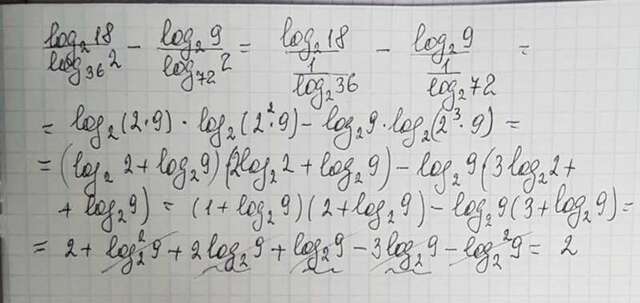 log₂18/log₃₆2 − log₂9/log₇₂2 = log₂18/(1/log₂36) − log₂9/(1/log₂72) =
= log₂(2·9)·log₂(2²·9) − log₂9·log₂(2³·9) =
= (log₂2 + log₂9)(2log₂2 + log₂9) − log₂9(3log₂2 +
+ log₂9) = (1 + log₂9)(2 + log₂9) − log₂9(3 + log₂9) =
= 2 + log₂²9 + 2log₂9 + log₂9 − 3log₂9 − log₂²9 = 2